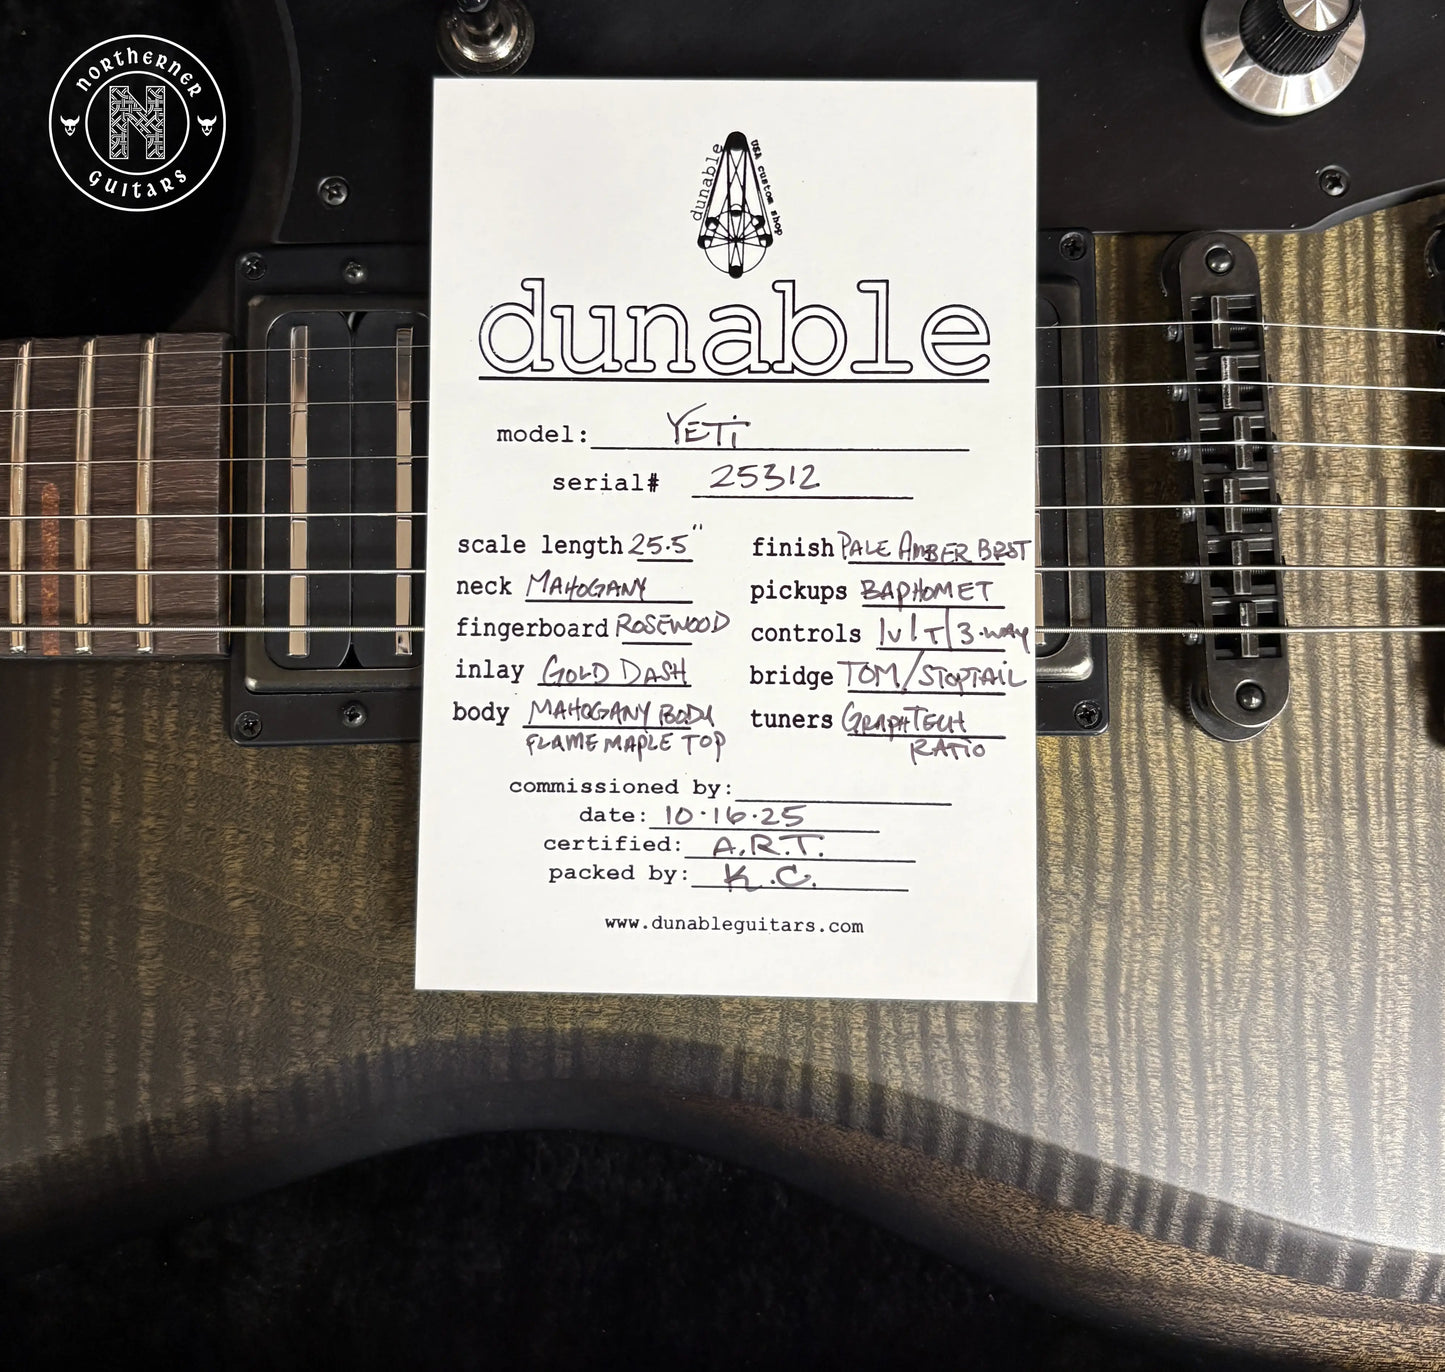 NORTHERNER
N
GUITARS
dunable
USA custom shop
dunable
model: YETi
serial# 25312
scale length 25.5"
neck MAHOGANY
fingerboard ROSEWOOD
inlay GOLD DASH
body MAHOGANY BODY
FLAME MAPLE TOP
finish PALE AMBER BRST
pickups BAPHOMET
controls 1v/T/3-way
bridge TOM/STOPTAIL
tuners GRAPHTECH
RATIO
commissioned by:
date: 10·16·25
certified: A.R.T.
packed by: K.C.
www.dunableguitars.com